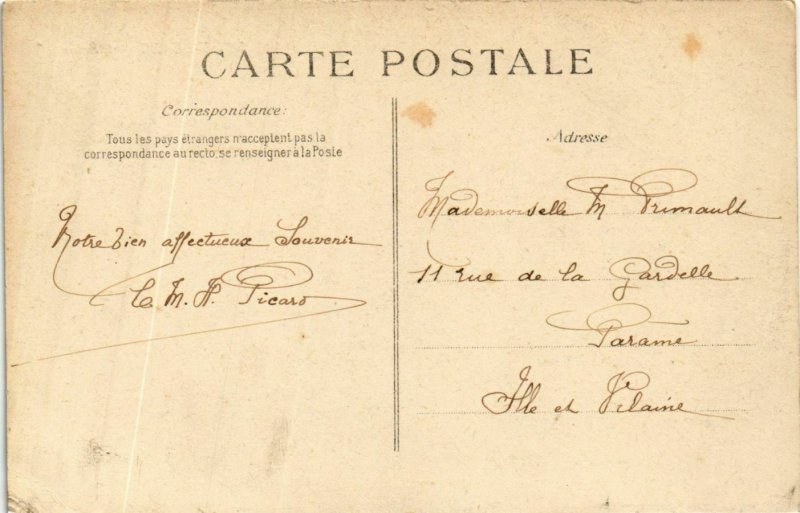 CARTE POSTALE
Correspondance:
Tous les pays étrangers n'acceptent pas la
correspondance au recto, se renseigner à la Poste
Notre bien affectueux Souvenir
M. A. Picard
Adresse
Mademoiselle M Primault
11 rue de la Gardelle
Parame
Ille et Vilaine